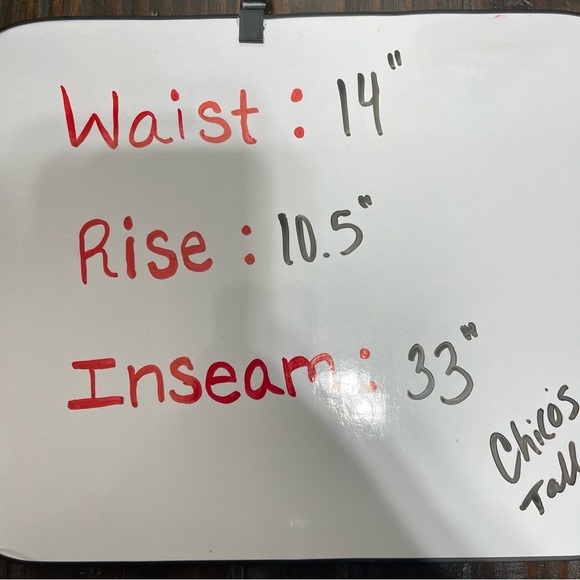 Waist: 14"
Rise: 10.5"
Inseam: 33"
Chico's
Tall